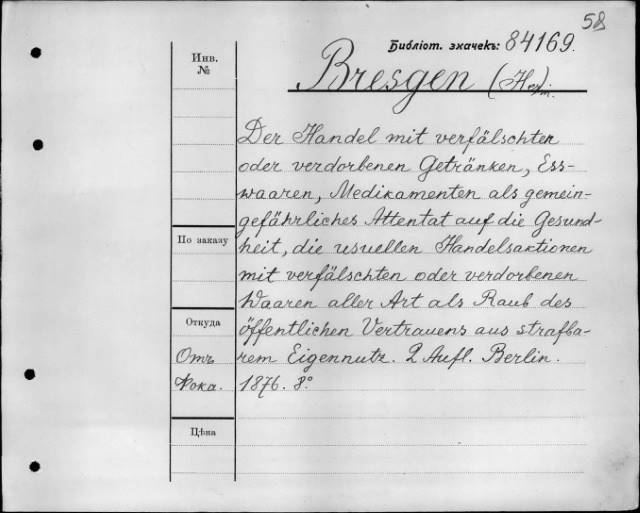 58
Библіот. значекъ: 84169.
Инв.
№
Bresgen (H.)
Der Handel mit verfälschten
oder verdorbenen Getränken, Ess-
waaren, Medikamenten als gemein-
gefährliches Attentat auf die Gesund-
По заказу
heit, die usuellen Handelsaktionen
mit verfälschten oder verdorbenen
Waaren aller Art als Raub des
Откуда
öffentlichen Vertrauens aus strafba-
Отъ
rem Eigennutz. 2 Aufl. Berlin.
Фока.
1876. 8°
Цѣна